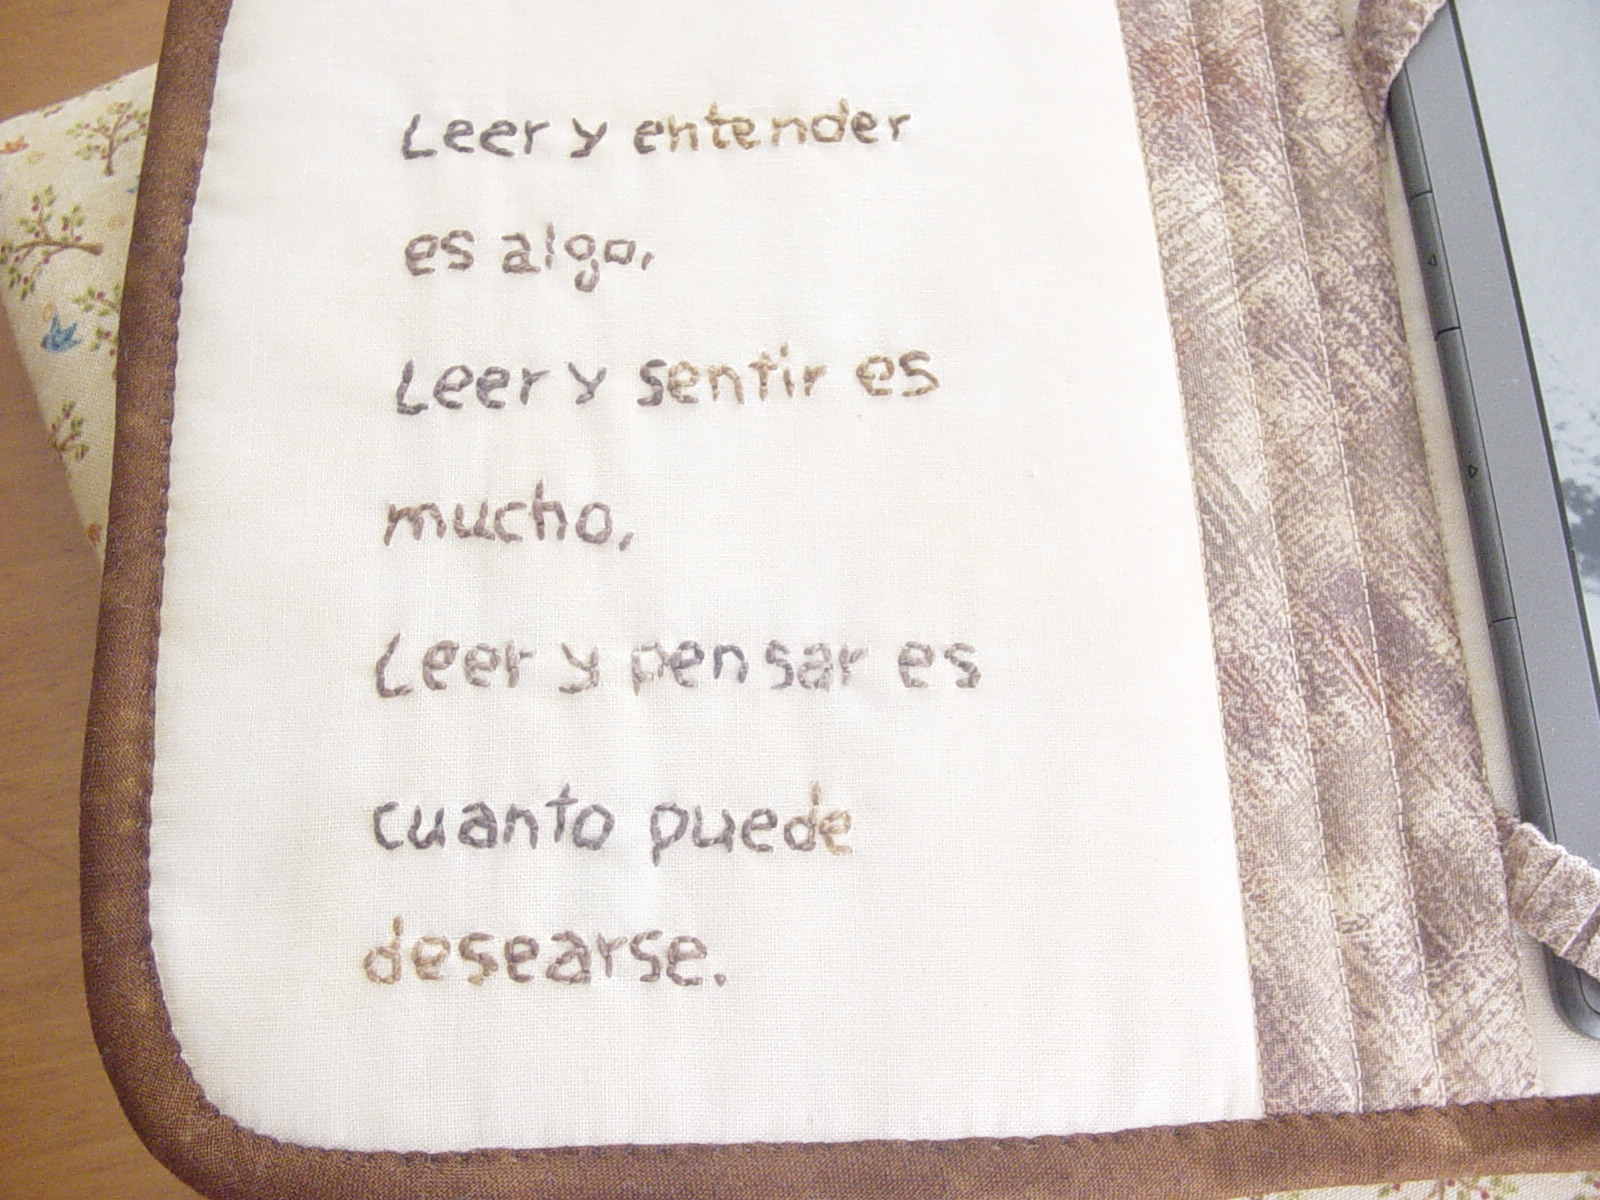 Leer y entender
es algo,
Leer y sentir es
mucho,
Leer y pensar es
cuanto puede
desearse.